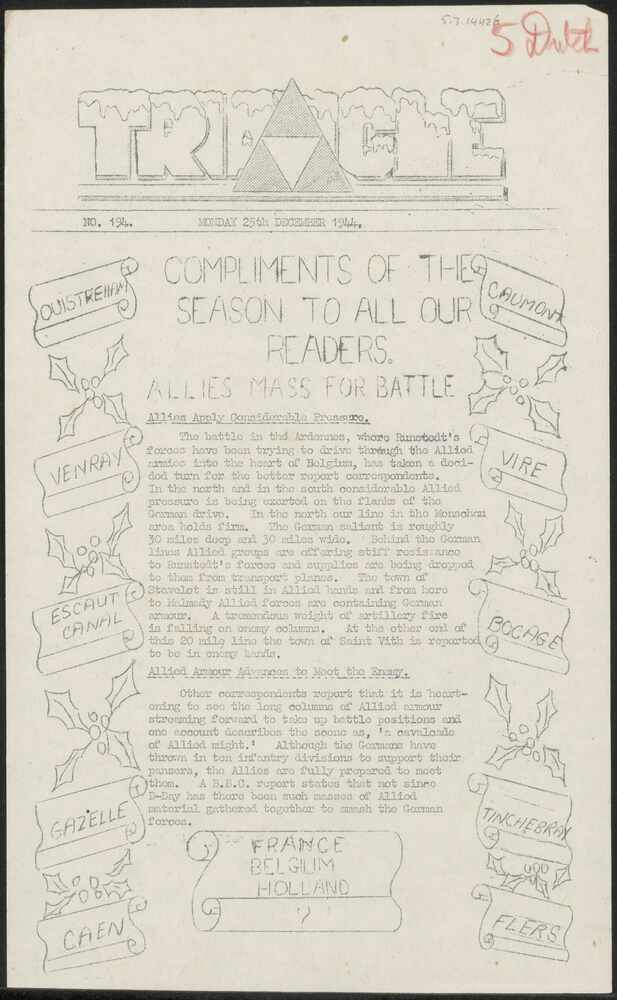 5.7.14426
5 Dutch
TRIANGLE
NO. 194. MONDAY 25th DECEMBER 1944.
COMPLIMENTS OF THE
SEASON TO ALL OUR
READERS.
ALLIES MASS FOR BATTLE
Allies Apply Considerable Pressure.
The battle in the Ardennes, where Runstedt's
forces have been trying to drive through the Allied
armies into the heart of Belgium, has taken a deci-
ded turn for the better report correspondents.
In the north and in the south considerable Allied
pressure is being exerted on the flanks of the
German drive. In the north our line in the Monschau
area holds firm. The German salient is roughly
30 miles deep and 30 miles wide. Behind the German
lines Allied groups are offering stiff resistance
to Runstedt's forces and supplies are being dropped
to them from transport planes. The town of
Stavelot is still in Allied hands and from here
to Malmedy Allied forces are containing German
armour. A tremendous weight of artillery fire
is falling on enemy columns. At the other end of
this 20 mile line the town of Saint Vith is reported
to be in enemy hands.
Allied Armour Advances to Meet the Enemy.
Other correspondents report that it is heart-
ening to see the long columns of Allied armour
streaming forward to take up battle positions and
one account describes the scene as, 'a cavalcade
of Allied might.' Although the Germans have
thrown in ten infantry divisions to support their
panzers, the Allies are fully prepared to meet
them. A B.B.C. report states that not since
D-Day has there been such masses of Allied
material gathered together to smash the German
forces.
OUISTREHAM
VENRAY
ESCAUT
CANAL
GAZELLE
CAEN
CAUMONT
VIRE
BOCAGE
TINCHEBRAY
FLERS
FRANCE
BELGIUM
HOLLAND
?